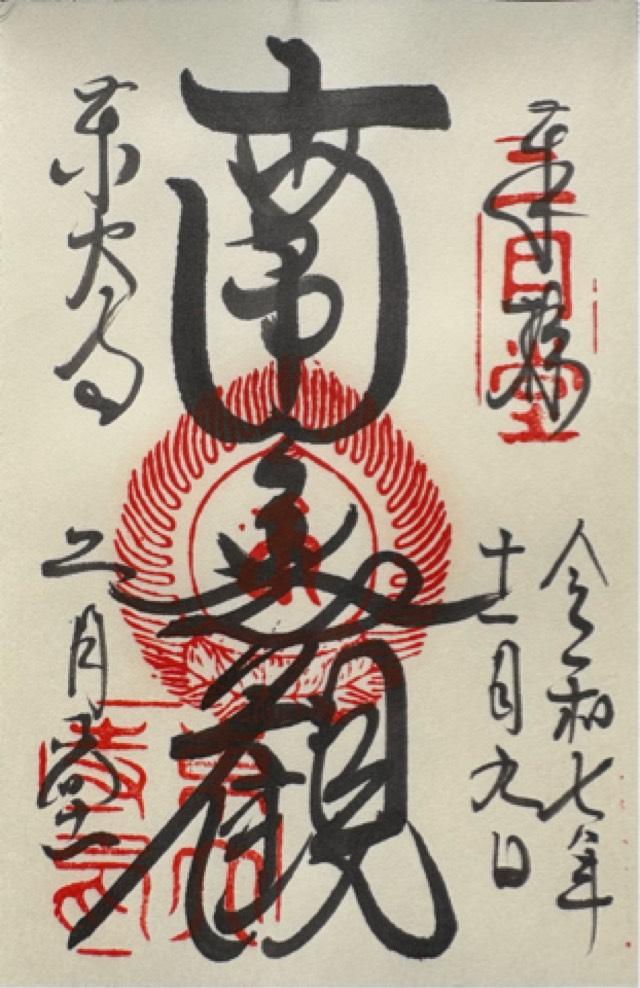 奉拝
二月堂
令和七年
十一月九日
南無観
東大寺
二月堂